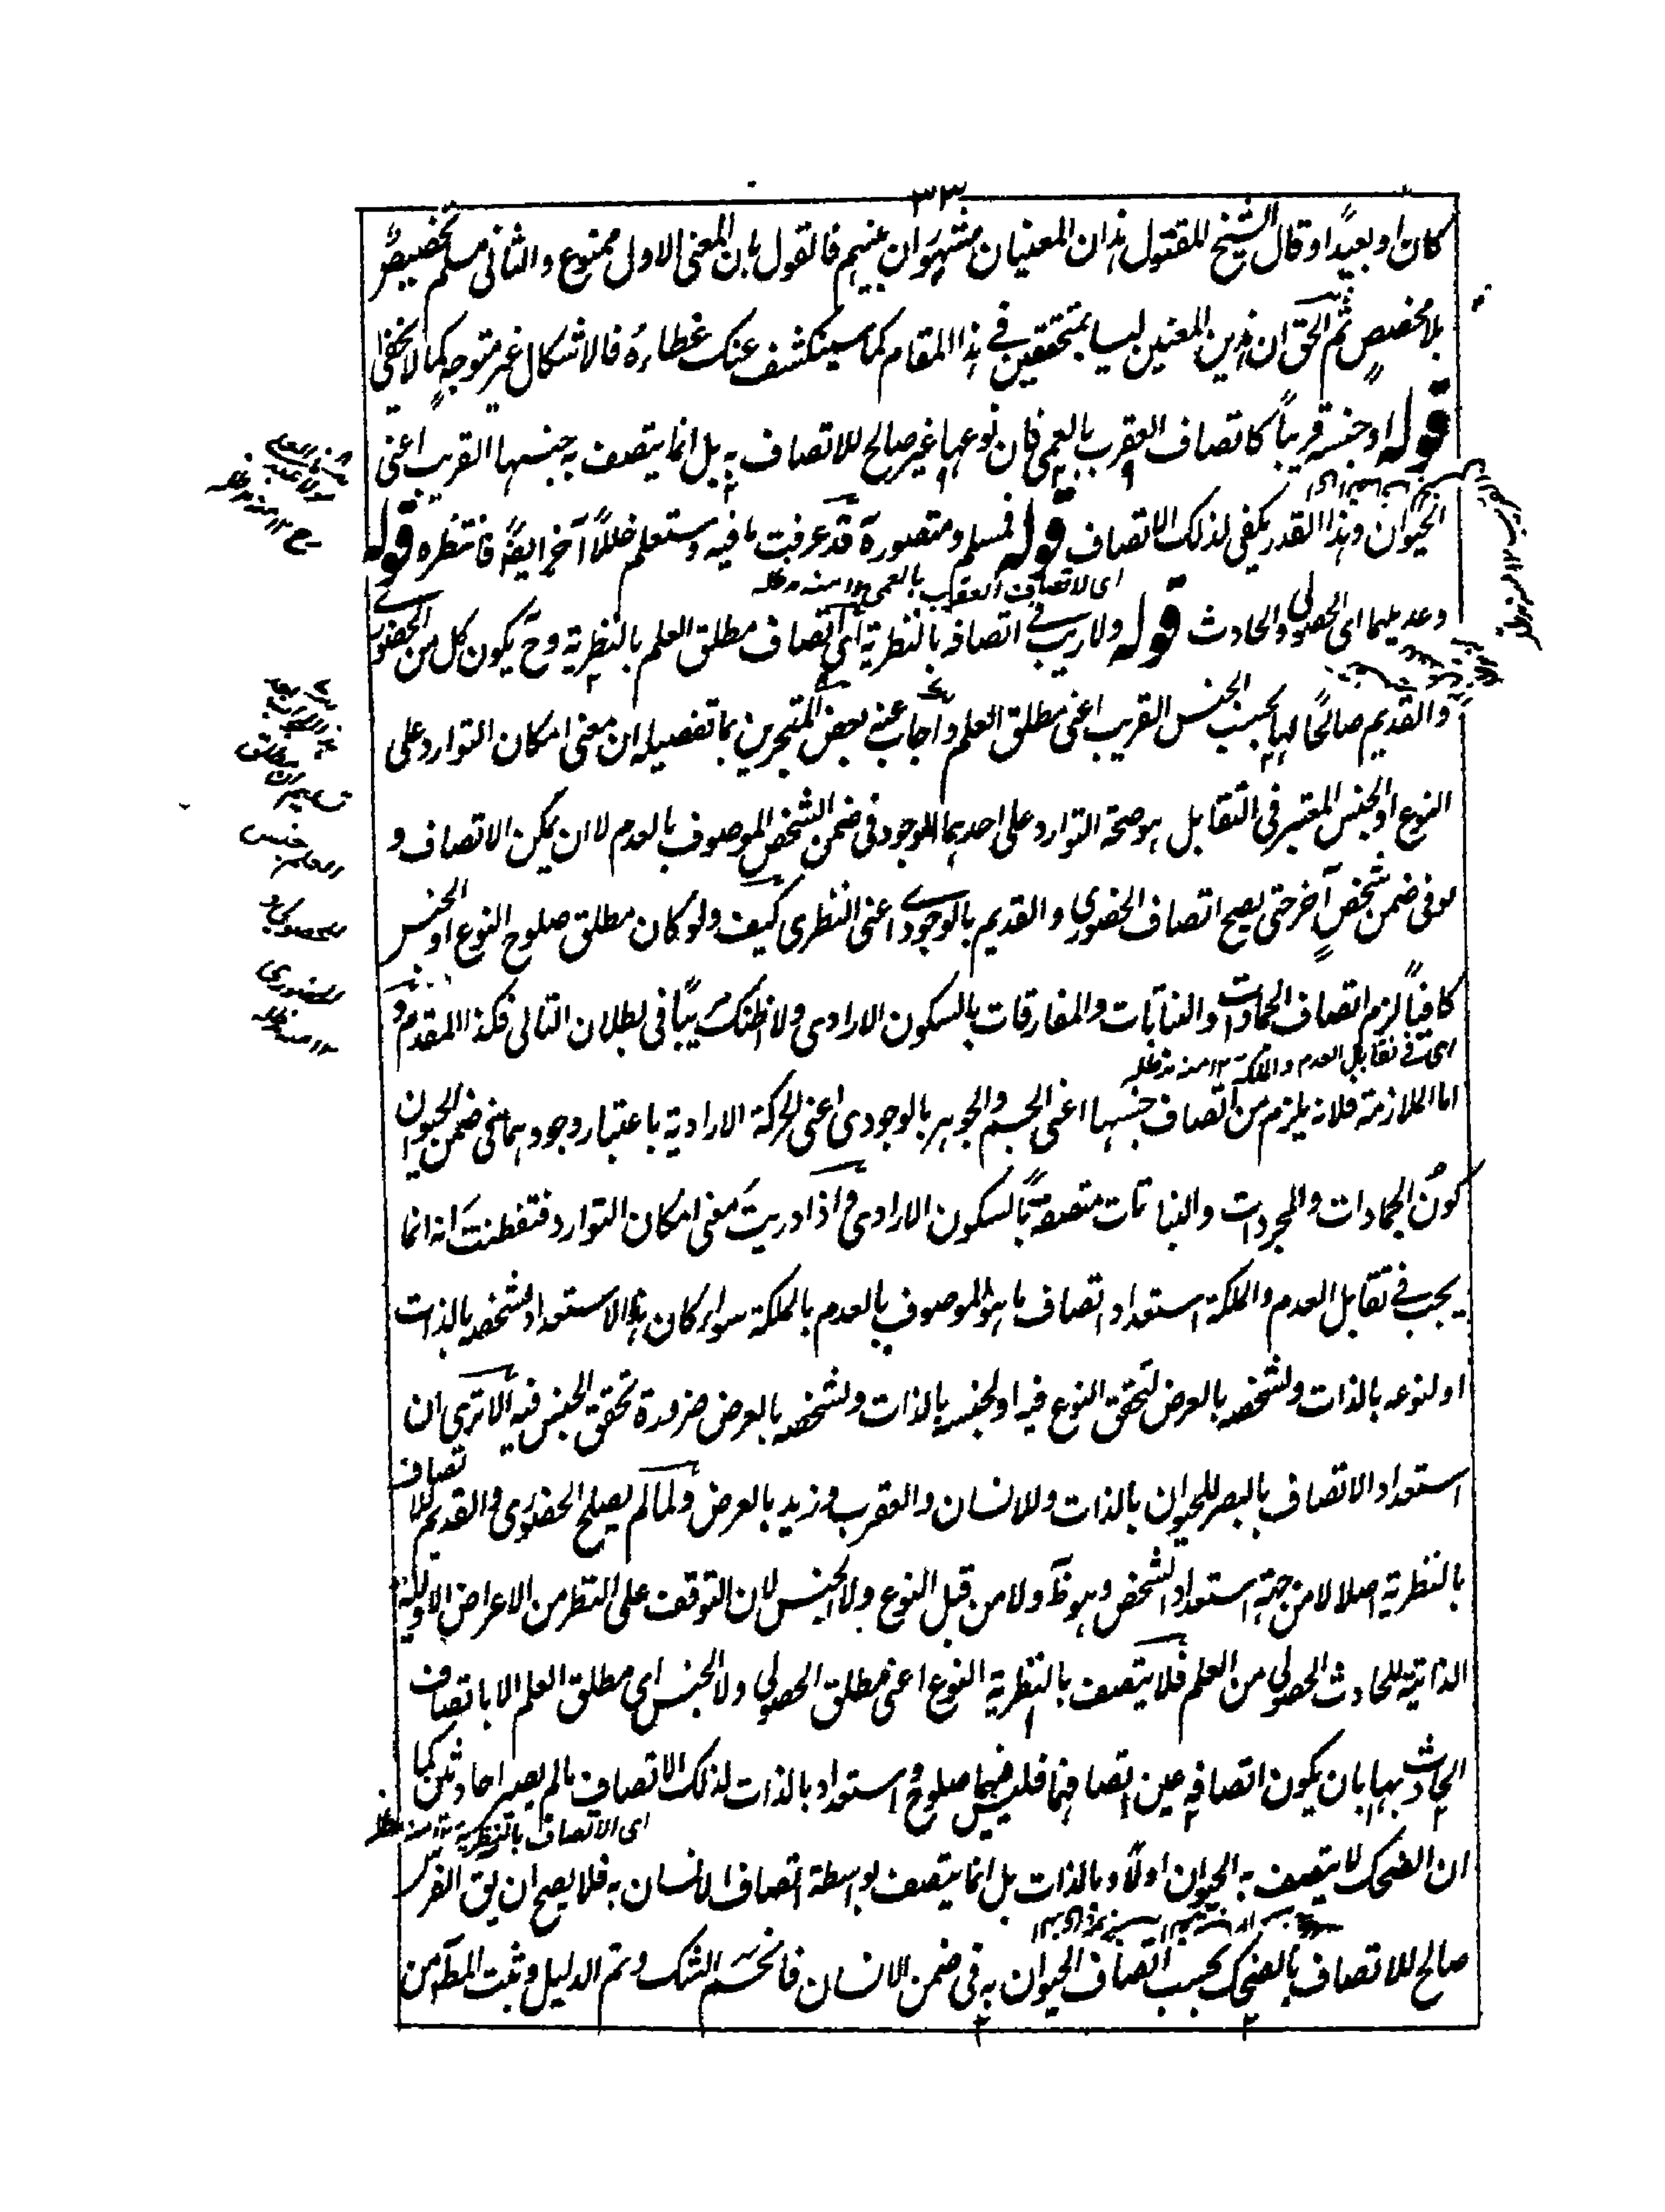 ٣٣
كان او بعيدًا وقال الشيخ المقتول هذان المعنيان مشهوران عنهم فالقول بان المعنى الاول ممنوع والثانى مسلم تخصيصٌ
بلا مخصصٍ ثم الحق ان هذين المعنيين ليسا بمتحققين فى هذا المقام كما سينكشف عنك غطاءه فالاشكال غير متوجه كما لا يخفى
قوله او جنسه قريبًا كاتصاف العقرب بالعمى فان نوعها غير صالح للاتصاف به بل انما يتصف به جنسها القريب اعنى
الحيوان وهذا القدر يكفى لذلك الاتصاف قوله فمسلم ومتصورة قد عرفت ما فيه وستعلم خللًا آخر ايضًا فانتظره قوله
اى لاتصاف العقرب بالعمى ١٢ منه مدظله
وعديلهما اى الحصولى والحادث قوله ولا ريب فى اتصافه بالنظرية اى اتصاف مطلق العلم بالنظرية وح يكون كل من الحضورى
والقديم صالحًا لها بحسب الجنس القريب اعنى مطلق العلم واجاب عنه بعض المتبحرين بما تفصيله ان معنى امكان التوارد على
النوع او الجنس المعتبر فى التقابل هو صحة التوارد على احدهما الموجود فى ضمن الشخص الموصوف بالعدم لا ان يمكن الاتصاف و
لو فى ضمن شخصٍ آخر حتى يصح اتصاف الحضورى والقديم بالوجودى اعنى النظرى كيف ولو كان مطلق صلوح النوع او الجنس
كافيًا لزم اتصاف الجمادات والنباتات والمفارقات بالسكون الارادى ولا اظنك مريبًا فى بطلان التالى فكذا المقدم و
اى فى تقابل العدم والملكة ١٢ منه مدظله
اما الملازمة فلانه يلزم من اتصاف جنسها اعنى الجسم والجوهر بالوجودى اعنى الحركة الارادية باعتبار وجودهما فى ضمن الحيوان
كون الجمادات والمجردات والنباتات متصفةً بالسكون الارادى واذا دريت معنى امكان التوارد فتفطنت انه انما
يجب فى تقابل العدم والملكة استعداد اتصاف ما هو الموصوف بالعدم بالملكة سواء كان هذا الاستعداد لشخصه بالذات
او لنوعه بالذات ولشخصه بالعرض لتحقق النوع فيه او لجنسه بالذات ولشخصه بالعرض ضرورة تحقق الجنس فيه الا ترى ان
استعداد الاتصاف بالبصر للحيوان بالذات وللانسان والعقرب وزيد بالعرض ولما لم يصلح الحضورى والقديم للاتصاف
بالنظرية اصلا لا من جهة استعداد الشخص وهو ظ ولا من قبل النوع ولا الجنس لان التوقف على النظر من الاعراض الاولية
الذاتية للحادث الحصولى من العلم فلا يتصف بالنظرية النوع اعنى مطلق الحصولى ولا الجنس اى مطلق العلم الا باتصاف
الحادث بها بان يكون اتصافه عين اتصافهما فليس فيهما صلوح واستعداد بالذات لذلك الاتصاف ما لم يصيرا حادثين كما
اى الاتصاف بالنظرية ١٢ منه مدظله
ان الضحك لا يتصف به الحيوان اولًا وبالذات بل انما يتصف بواسطة اتصاف الانسان به فلا يصح ان يق الفرس
صالح للاتصاف بالضحك بحسب اتصاف الحيوان به فى ضمن الانسان فانحسم الشك وتم الدليل وثبت المط من